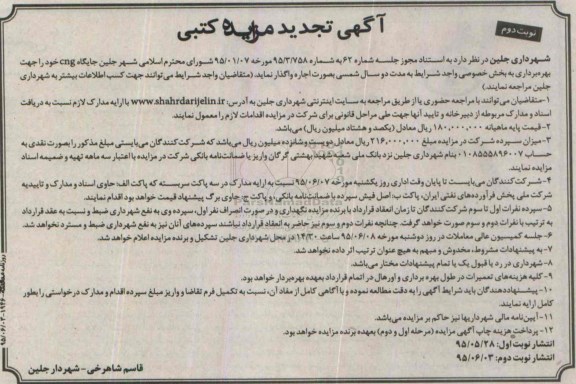 نوبت دوم
آگهی تجدید مزایده کتبی
شهرداری جلین در نظر دارد به استناد مجوز جلسه شماره ۶۲ به شماره ۹۵/۳/۷۵۸ مورخه ۹۵/۰۱/۰۷ شورای محترم اسلامی شهر جلین جایگاه cng خود را جهت
بهره‌برداری به بخش خصوصی واجد شرایط به مدت دو سال شمسی بصورت اجاره واگذار نماید. (متقاضیان واجد شرایط می‌توانند جهت کسب اطلاعات بیشتر به شهرداری
جلین مراجعه نمایند.)
۱-متقاضیان می‌توانند با مراجعه حضوری یا از طریق مراجعه به سایت اینترنتی شهرداری جلین به آدرس: www.shahrdarijelin.ir با ارایه مدارک لازم نسبت به دریافت
اسناد و مدارک مربوطه از دبیرخانه و تایید آنها جهت طی مراحل قانونی برای شرکت در مزایده اقدامات لازم را معمول نمایند.
۲-قیمت پایه ماهیانه ۱۸۰,۰۰۰,۰۰۰ ریال معادل (یکصد و هشتاد میلیون ریال) می‌باشد.
۳-میزان سپرده شرکت در مزایده مبلغ ۲۱۶,۰۰۰,۰۰۰ ریال معادل دویست و شانزده میلیون ریال می‌باشد که شرکت‌کنندگان می‌بایستی مبلغ مذکور را بصورت نقدی به
حساب ۰۱۰۸۵۵۵۸۹۶۰۰۷ بنام شهرداری جلین نزد بانک ملی شعبه شهید بهشتی گرگان واریز یا ضمانت‌نامه بانکی شرکت در مزایده با اعتبار سه ماهه تهیه و ضمیمه اسناد
مزایده نمایند.
۴-شرکت‌کنندگان می‌بایست تا پایان وقت اداری روز یکشنبه مورخه ۹۵/۰۶/۰۷ نسبت به ارایه مدارک در سه پاکت سربسته که پاکت الف: حاوی اسناد و مدارک و تاییدیه
شرکت ملی پخش فرآورده‌های نفتی ایران، پاکت ب: اصل فیش سپرده یا ضمانت‌نامه بانکی، و پاکت ج: حاوی برگ پیشنهاد قیمت خواهد بود اقدام نمایند.
۵-سپرده نفرات اول تا سوم شرکت‌کنندگان تا زمان انعقاد قرارداد با برنده مزایده نگهداری و در صورت انصراف نفر اول، سپرده وی به نفع شهرداری ضبط و نسبت به عقد قرارداد
به ترتیب با نفرات دوم و سوم صورت خواهد گرفت. چنانچه نفرات دوم و سوم نیز حاضر به انعقاد قرارداد نباشند سپرده‌های آنان نیز به نفع شهرداری ضبط و مسترد نخواهد شد.
۶-جلسه کمیسیون عالی معاملات در روز دوشنبه مورخه ۹۵/۰۶/۰۸ ساعت ۱۴/۳۰ در محل شهرداری جلین تشکیل و برنده مزایده اعلام خواهد شد.
۷-به پیشنهادات مشروط، مخدوش و مبهم به هیچ عنوان ترتیب اثر داده نخواهد شد.
۸-شهرداری در رد یا قبول یک یا تمام پیشنهادات مختار می‌باشد.
۹-کلیه هزینه‌های تعمیرات در طول بهره برداری و اورهال در اتمام قرارداد بعهده بهره‌بردار خواهد بود.
۱۰-پیشنهاددهندگان باید شرایط آگهی را به دقت مطالعه نموده و با آگاهی کامل از مفاد آن، نسبت به تکمیل فرم تقاضا و واریز مبلغ سپرده اقدام و مدارک درخواستی را بطور
کامل ارایه نمایند.
۱۱-آیین‌نامه مالی شهرداریها نیز حاکم بر مزایده می‌باشد.
۱۲-پرداخت هزینه چاپ آگهی مزایده (مرحله اول و دوم) بعهده برنده مزایده خواهد بود.
انتشار نوبت اول: ۹۵/۰۵/۲۸
انتشار نوبت دوم: ۹۵/۰۶/۰۳
قاسم شاهرخی - شهردار جلین